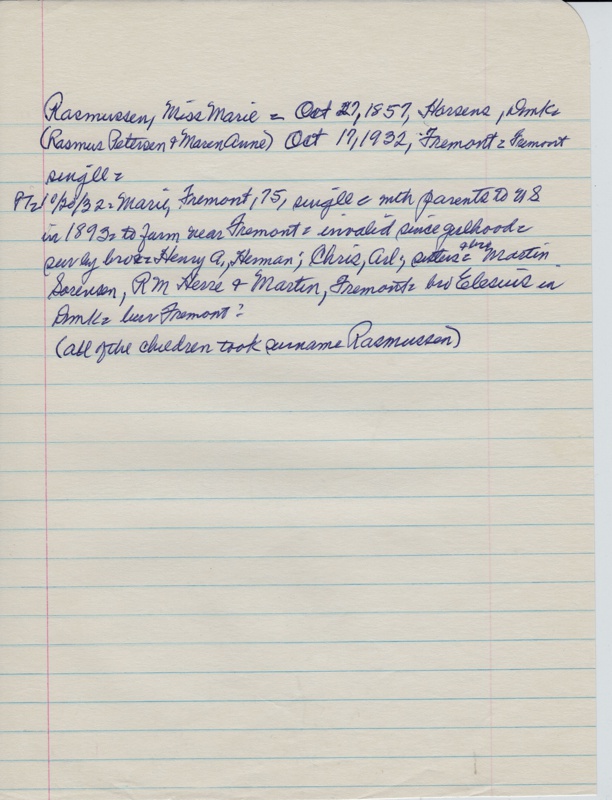 Rasmussen, Miss Marie = Oct 27, 1857, Horsens, Dmk=
(Rasmus Petersen & Maren Anne) Oct 17, 1932, Fremont = Fremont
single =
PT= 10/20/32 = Marie, Fremont, 75, single = with parents to US
in 1893 = to farm near Fremont = invalid since girlhood =
surv by bros = Henry A., Herman; Chris, Arl; sisters = Mmes Martin
Sorensen, R M Herre & Martin, Fremont = bro in
Dmk = bur Fremont?
(all of the children took surname Rasmussen)